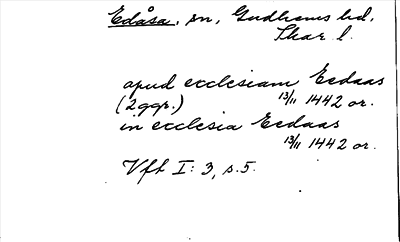 Edåsa, sn, Gudhems hd,
Skar. l.
apud ecclesiam Eedaas
(2 ggr.) 13/11 1442 or.
in ecclesia Eedaas
13/11 1442 or.
Vft I: 3, s. 5.